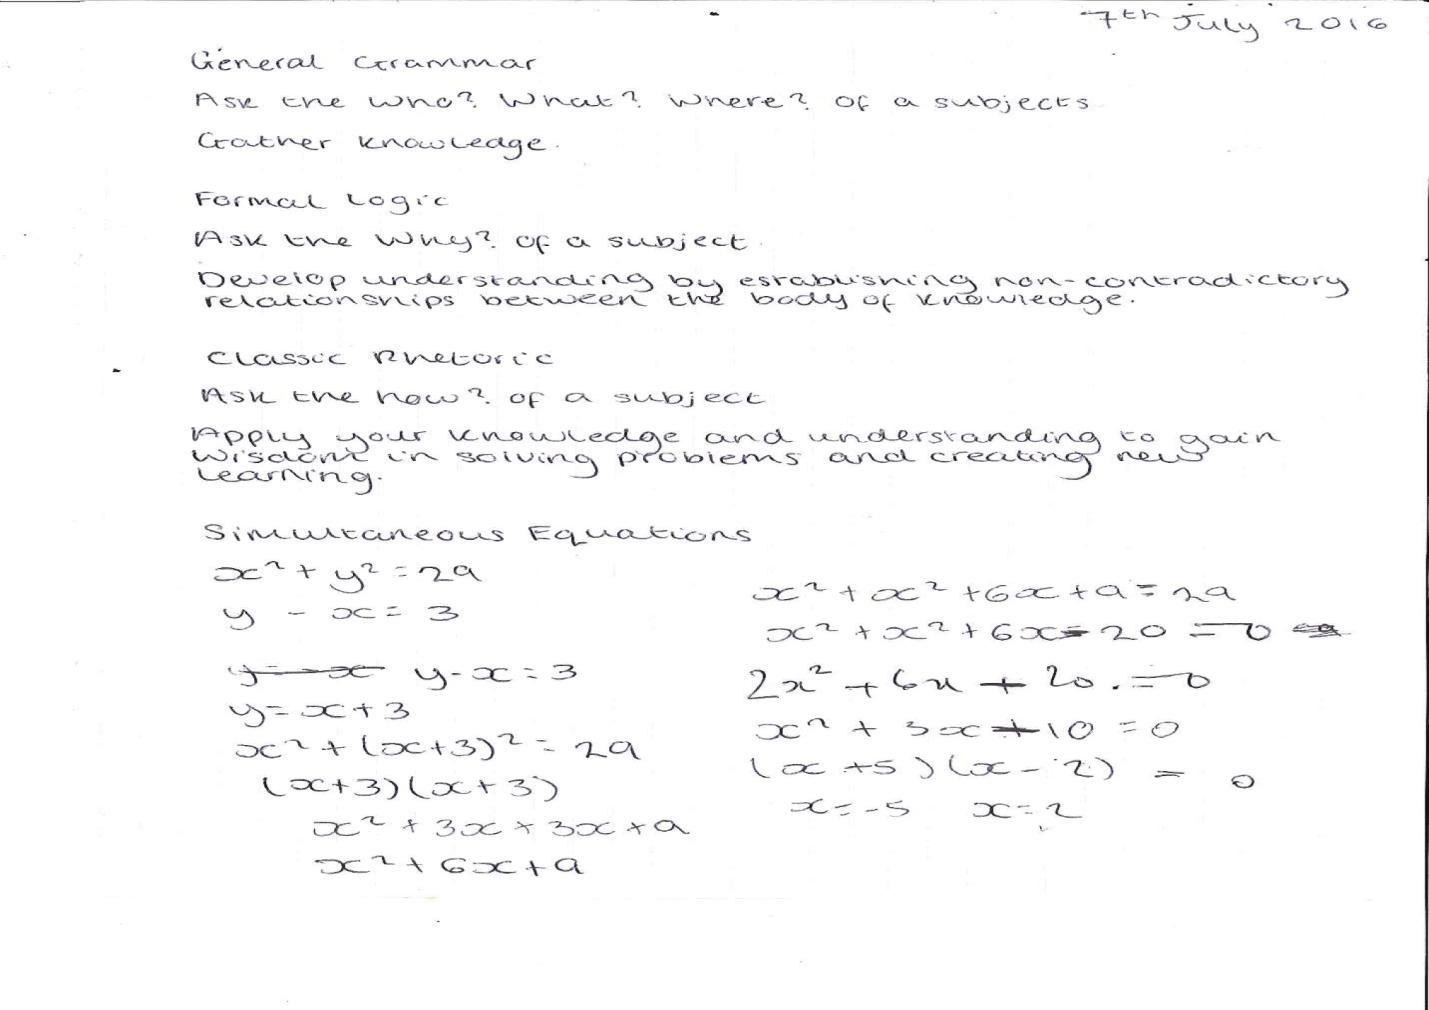 7th July 2016
General Grammar
Ask the who? What? Where? of a subjects
Gather knowledge.
Formal Logic
Ask the Why? of a subject.
Develop understanding by establishing non-contradictory
relationships between the body of knowledge.
Classic Rhetoric
Ask the how? of a subject
Apply your knowledge and understanding to gain
wisdom in solving problems and creating new
learning.
Simultaneous Equations
x² + y² = 29
y - x = 3
y - x = 3
y = x + 3
x² + (x+3)² = 29
(x+3)(x+3)
x² + 3x + 3x + 9
x² + 6x + 9
x² + x² + 6x + 9 = 29
x² + x² + 6x - 20 = 0
2x² + 6x - 20 = 0
x² + 3x - 10 = 0
(x + 5)(x - 2) = 0
x = -5 x = 2